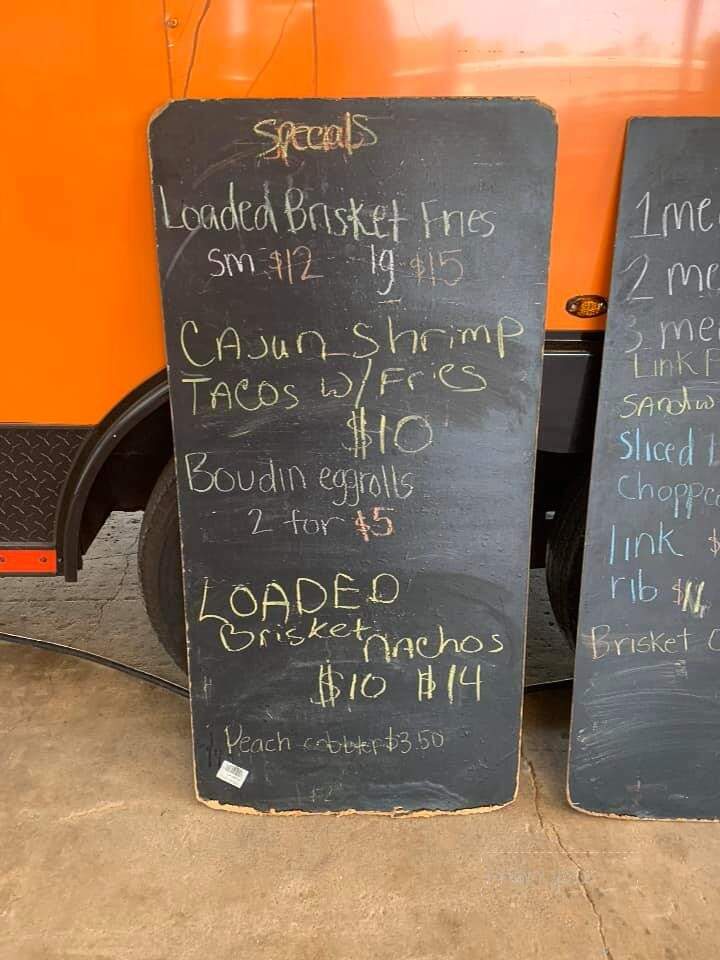 Specials
Loaded Brisket Fries
sm $12 lg $15
CAJun Shrimp
TACOS w/ Fries
$10
Boudin eggrolls
2 for $5
LOADED
Brisket nachos
$10 $14
Peach cobbler $3.50
1 me
2 me
3 me
Link F
SAndw
Sliced
Choppe
link $
rib $11
Brisket